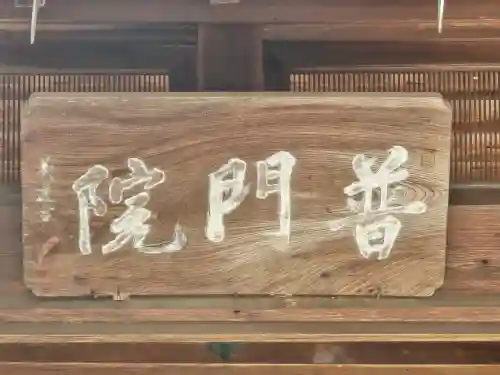 普門院